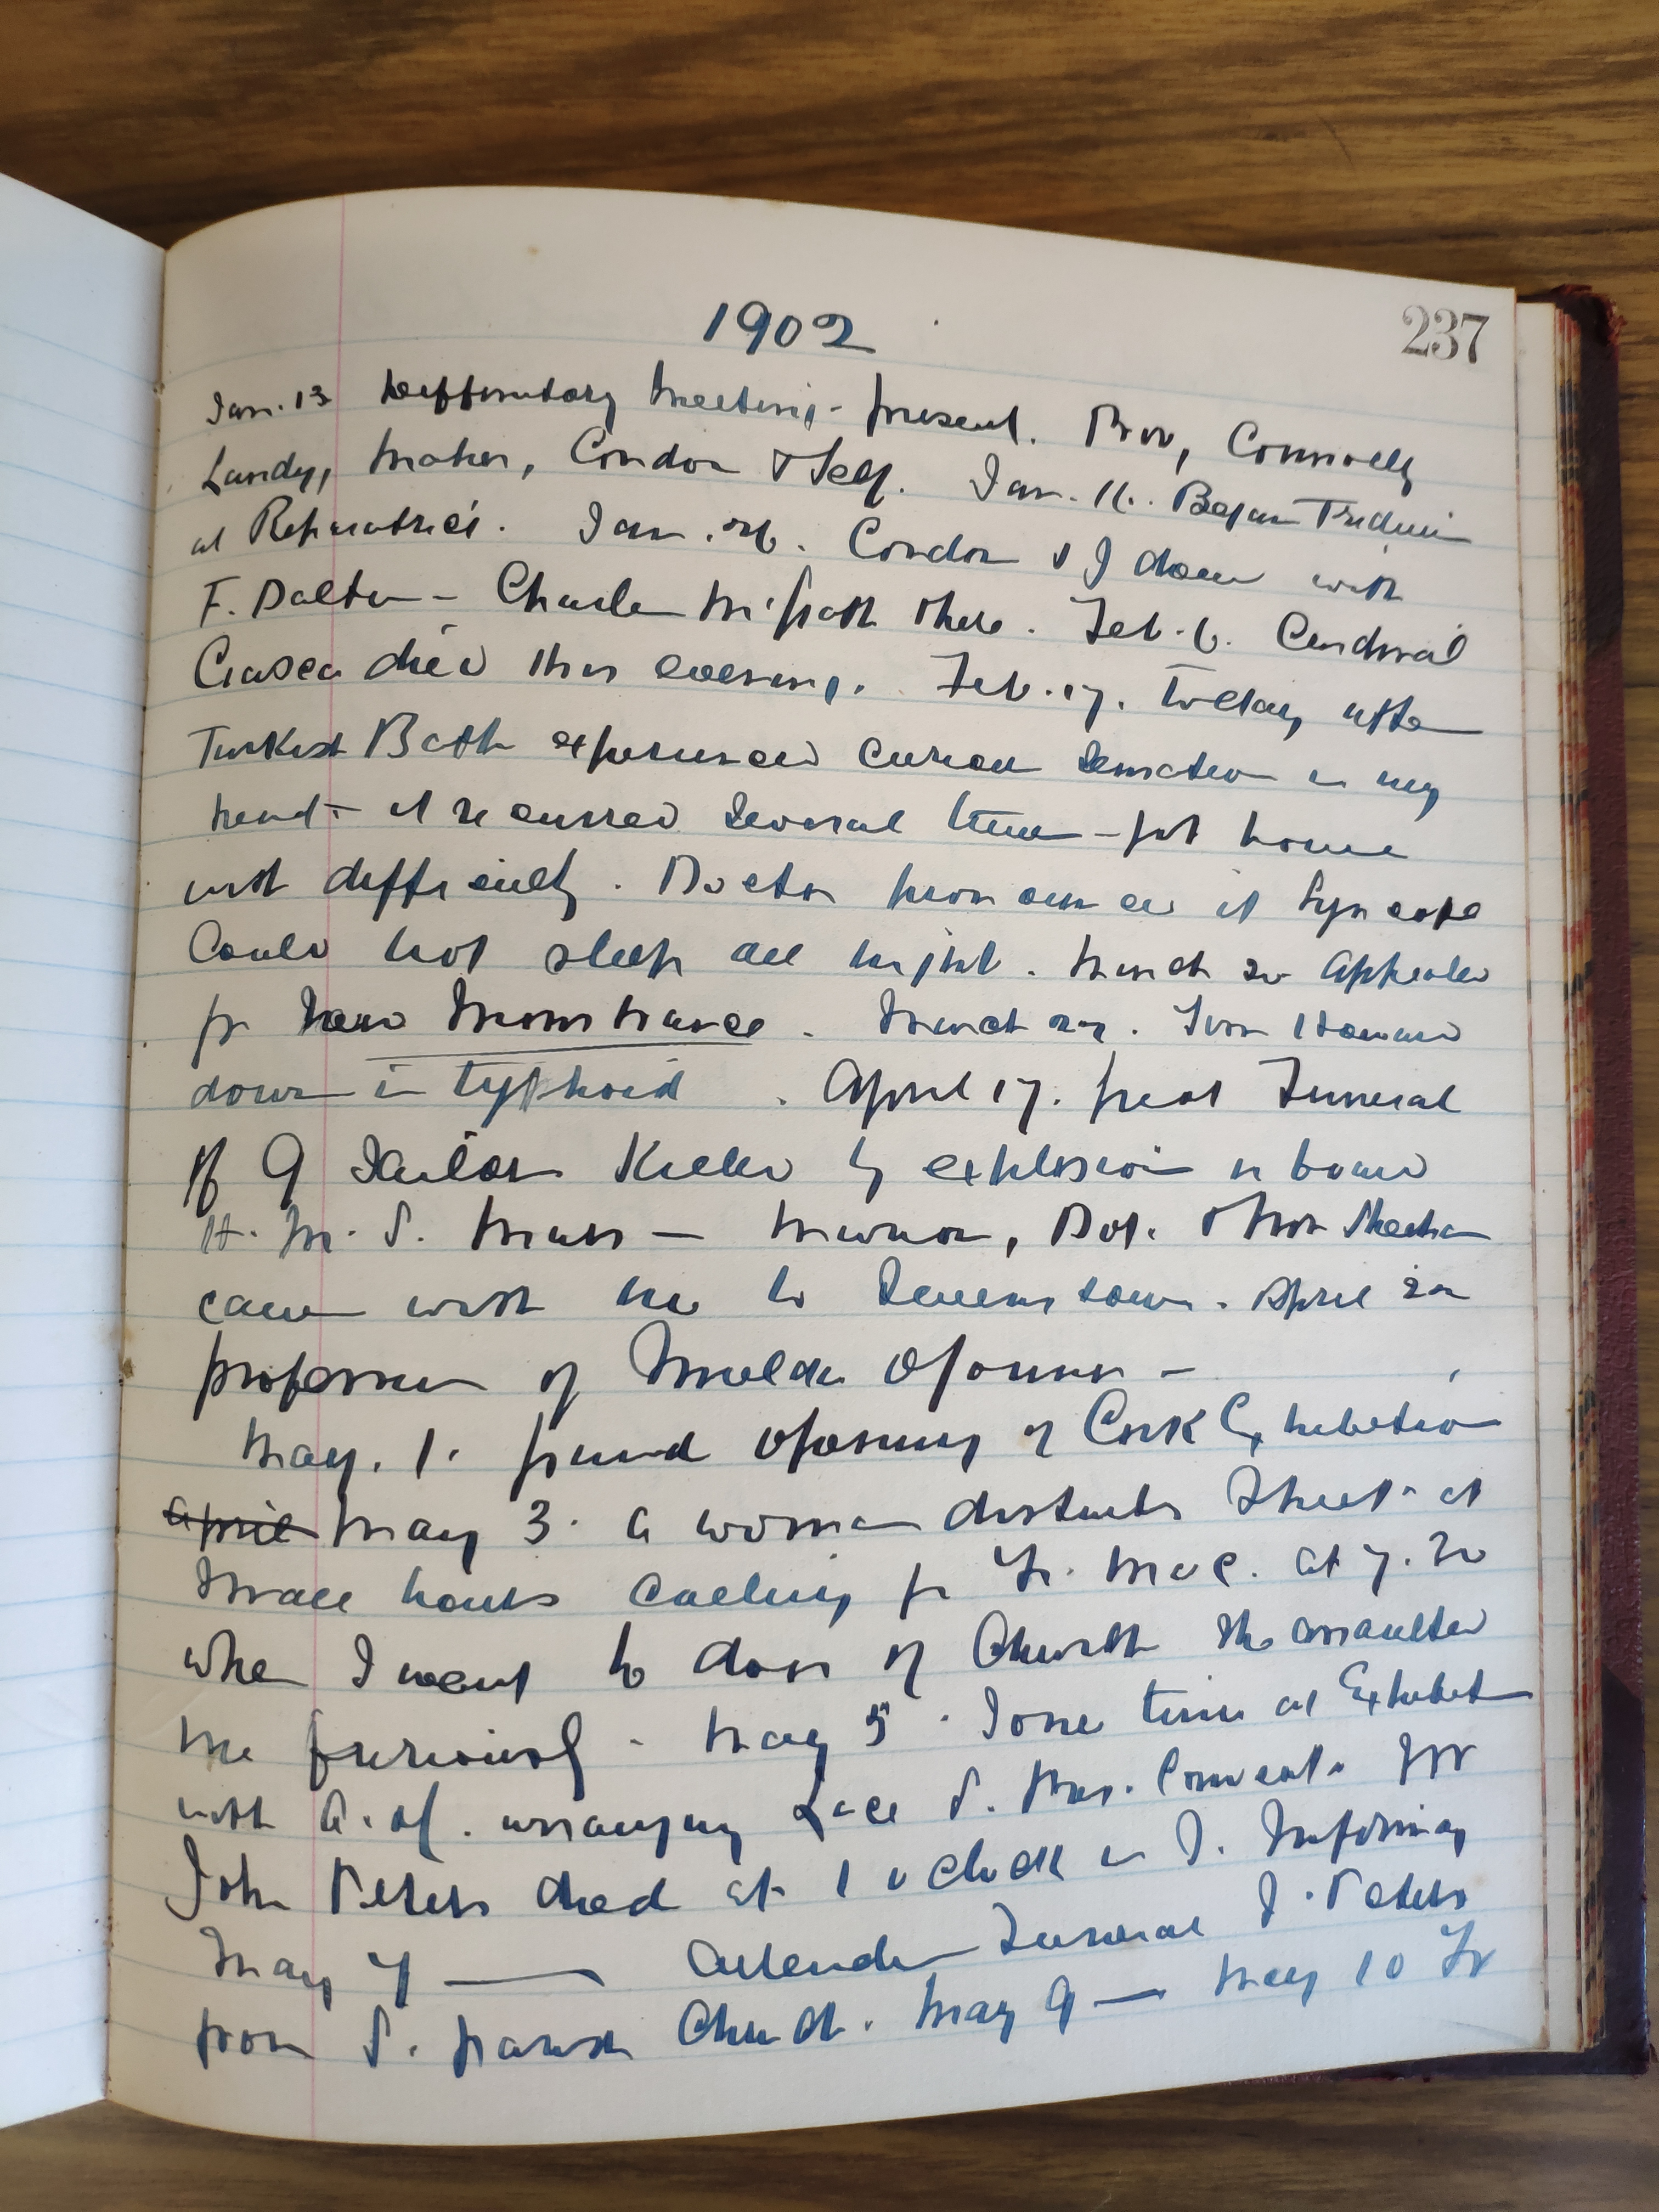 1902
237
Jan. 13 Deffinitory Meeting - present. Prov, Connolly
Landy, Maher, Condon & Self. Jan. 16. Began Triduum
at Reparatrice's. Jan. 26. Condon & I dine with
F. Dalton - Charles McGrath there. Feb. 6. Cardinal
Ciasca died this evening. Feb. 17. Today after
Turkish Bath experienced curious sensation in my
head - it recurred several times - got home
with difficulty. Doctor pronounced it Syncope
Could not sleep all night. March 20 Appealed
for New Monstrance. March 27. Tom Howard
down in typhoid. April 17. great Funeral
of 9 Sailors Killed by explosion on board
H. M. S. Mars - Dot.
came with me to Queenstown. April 20
profession of Imelda O'Connor -
May. 1. Grand Opening of Cork Exhibition
April May 3. A woman disturbs Street at
small hours calling for Fr. Mac. at 7.30
when I went to door of Church she assaulted
me furiously - May 5. Some time at Exhibit
with A. arranging Lace P. Convent. Mr
John Peters died at 1 o'clock in S. Infirmary
May 7 — Attended Funeral J. Peters
from S. parish Church. May 9 — May 10 Fr